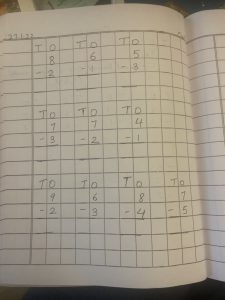 27-1-22
T O T O T O
8 6 5
- 2 - 1 - 3
T O T O T O
7 7 4
- 3 - 2 - 1
T O T O T O T O
9 6 8 7
- 2 - 3 - 4 - 5